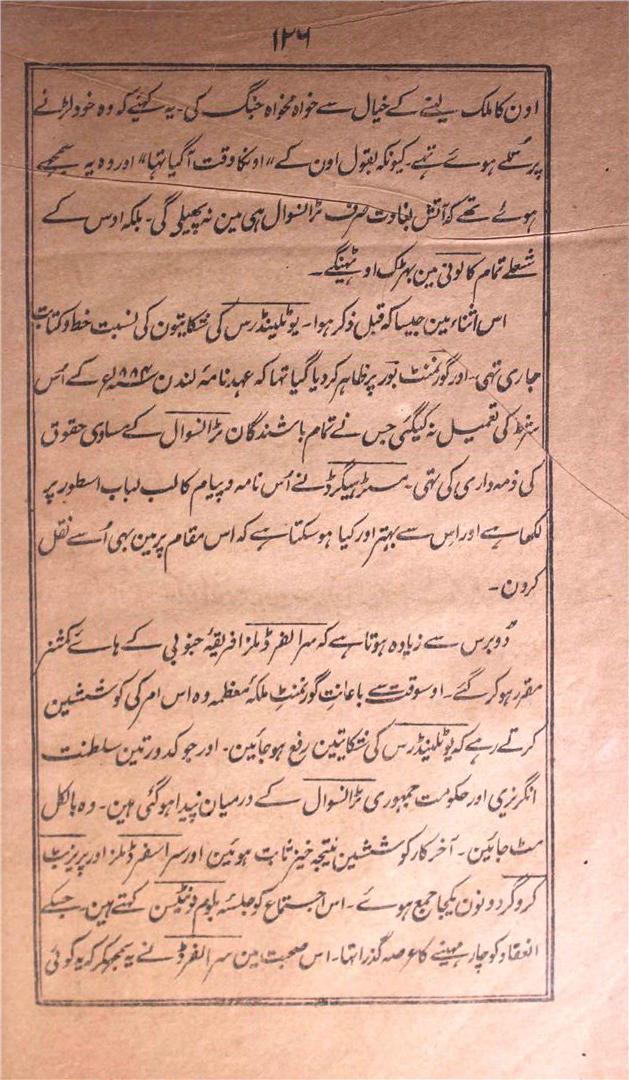 ۱۲۶
اون کا ملک لینے کے خیال سے خواہ مخواہ جنگ کی۔ یہ کہئیے کہ وہ خود لڑنے
پر تُلے ہوئے تہے۔ کیونکہ بقول اون کے "اونکا وقت آگیا تہا" اور وہ یہ سمجہے
ہوئے تھے کہ آتش بغاوت صرف ٹرانسوال ہی مین نہ پھیلی گی۔ بلکہ اوس کے
شعلے تمام کالونی مین بہڑک اوٹہینگے۔
اس اثناء مین جیسا کہ قبل ذکر ہوا۔ یوٹلینڈرس کی شکایتون کی نسبت خط و کتابت
جاری تہی۔ اور گورنمنٹ بور پر ظاہر کر دیا گیا تہا کہ عہد نامۂ لندن ۱۸۸۴ء کے اُس
شرط کی تعمیل نہ کیگئی جس نے تمام باشندگان ٹرانسوال کے مساوی حقوق
کی ذمہ داری کی تہی۔ مسٹر ہیگرڈ نے اُس نامہ و پیام کا لب لباب اسطور پر
لکھا ہے اور اس سے بہتر اور کیا ہو سکتا ہے کہ اس مقام پر مین بھی اُسے نقل
کرون۔
دو برس سے زیادہ ہوتا ہے کہ سر الفرڈ ملنر افریقۂ جنوبی کے ہائے کمشنر
مقرر ہو کر گئے۔ اوسوقت سے باعانتِ گورنمنٹِ ملکۂ معظمہ وہ اس امر کی کوششین
کرتے رہے کہ یوٹلینڈرس کی شکایتین رفع ہو جائین۔ اور جو کدورتین سلطنت
انگریزی اور حکومت جمہوری ٹرانسوال کے درمیان پیدا ہو گئی ہین۔ وہ بالکل
مٹ جائین۔ آخر کار کوششین نتیجہ خیز ثابت ہوئین اور سر الفرڈ ملنر اور پریزیڈنٹ
کروگر دونون یکجا جمع ہوئے۔ اس اجتماع کو جلسۂ بلوم فونٹین کہتے ہین۔ جسکے
انعقاد کو چار مہینے کا عرصہ گذرا تہا۔ اس صحبت مین سر الفرڈ نے یہ سمجہکر کہ یہ کوئی